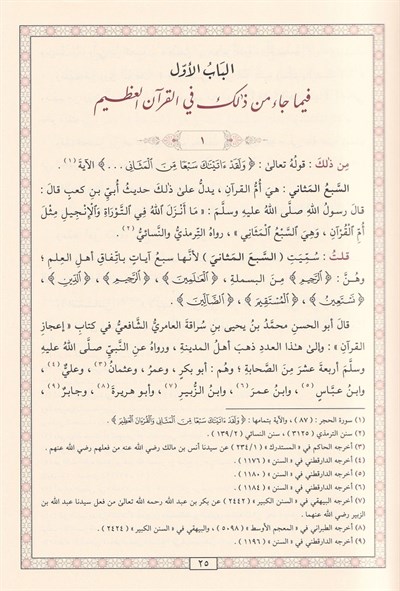 البَابُ الأوَّل
فيما جاء من ذلك في القرآن العظيم
١
مِن ذلكَ : قولُهُ تعالىٰ : ﴿ وَلَقَدْ ءَاتَيْنَٰكَ سَبْعًا مِّنَ ٱلْمَثَانِى ... ﴾ الآيةَ (١) .
السَّبعُ المَثاني : هيَ أُمُّ القرآنِ ، يدلُّ علىٰ ذلكَ حديثُ أُبيِّ بنِ كعبٍ قالَ :
قالَ رسولُ اللهِ صلَّى اللهُ عليهِ وسلَّمَ : « مَا أَنْزَلَ اللهُ فِي التَّوْرَاةِ وَالإِنْجِيلِ مِثْلَ
أُمِّ الْقُرْآنِ ، وَهِيَ السَّبْعُ الْمَثَانِي » ، رواه التِّرمذيُّ والنَّسائيُّ (٢)
قلتُ : سُمِّيَتِ ( السَّبعَ المَثانيَ ) لأنَّها سبعُ آياتٍ باتِّفاقِ أهلِ العِلمِ ؛
وهُنَّ : ﴿ ٱلرَّحِيمِ ﴾ مِنَ البسملةِ ، ﴿ ٱلْعَٰلَمِينَ ﴾ ، ﴿ ٱلرَّحِيمِ ﴾ ، ﴿ ٱلدِّينِ ﴾ ،
﴿ نَسْتَعِينُ ﴾ ، ﴿ ٱلْمُسْتَقِيمَ ﴾ ، ﴿ ٱلضَّآلِّينَ ﴾ .
قالَ أبو الحسنِ محمَّدُ بنُ يحيى بنِ سُراقةَ العامريُّ الشَّافعيُّ في كتابِ « إعجازِ
القرآنِ » : وإلىٰ هٰذا العددِ ذهبَ أهلُ المدينةِ ، ورواهُ عنِ النَّبيِّ صلَّى اللهُ عليهِ
وسلَّمَ أربعةَ عشرَ مِنَ الصَّحابةِ ؛ وهُم : أبو بكرٍ ، وعمرُ ، وعثمانُ (٣) ، وعليٌّ (٤) ،
وابنُ عبَّاسٍ (٥) ، وابنُ عمرَ (٦) ، وابنُ الزُّبيرِ (٧) ، وأبو هريرةَ (٨) ، وجابرٌ (٩) ،
(١) سورة الحجر : ( ٨٧ ) ، والآية بتمامها : ﴿ وَلَقَدْ ءَاتَيْنَٰكَ سَبْعًا مِّنَ ٱلْمَثَانِى وَٱلْقُرْءَانَ ٱلْعَظِيمَ ﴾ .
(٢) سنن الترمذي ( ٣١٢٥ ) ، سنن النسائي ( ١٣٩/٢ ) .
(٣) أخرجه الحاكم في « المستدرك » ( ٢٣٤/١ ) عن سيدنا أنس بن مالك رضي الله عنه من فعلهم رضي الله عنهم .
(٤) أخرجه الدارقطني في « السنن » ( ١١٧٦ ) .
(٥) أخرجه الدارقطني في « السنن » ( ١١٨٠ ) .
(٦) أخرجه الدارقطني في « السنن » ( ١١٨٤ ) .
(٧) أخرجه البيهقي في « السنن الكبير » ( ٢٤٤٢ ) عن بكر بن عبد الله رحمه الله تعالىٰ من فعل سيدنا عبد الله بن
الزبير رضي الله عنهما .
(٨) أخرجه الطبراني في « المعجم الأوسط » ( ٥٠٩٨ ) ، والبيهقي في « السنن الكبير » ( ٢٤٢٤ ) .
(٩) أخرجه الدارقطني في « السنن » ( ١١٩٦ ) .
٢٥